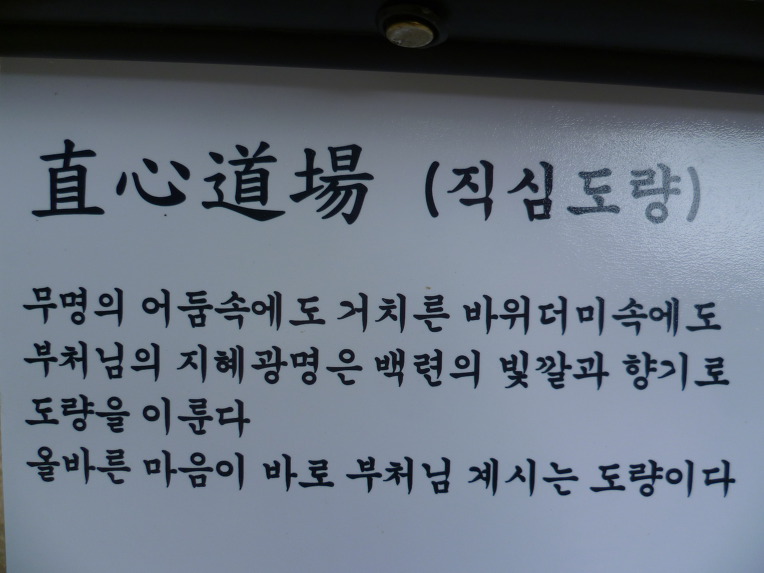 直心道場 (직심도량)
무명의 어둠속에도 거치른 바위더미속에도
부처님의 지혜광명은 백련의 빛깔과 향기로
도량을 이룬다
올바른 마음이 바로 부처님 계시는 도량이다